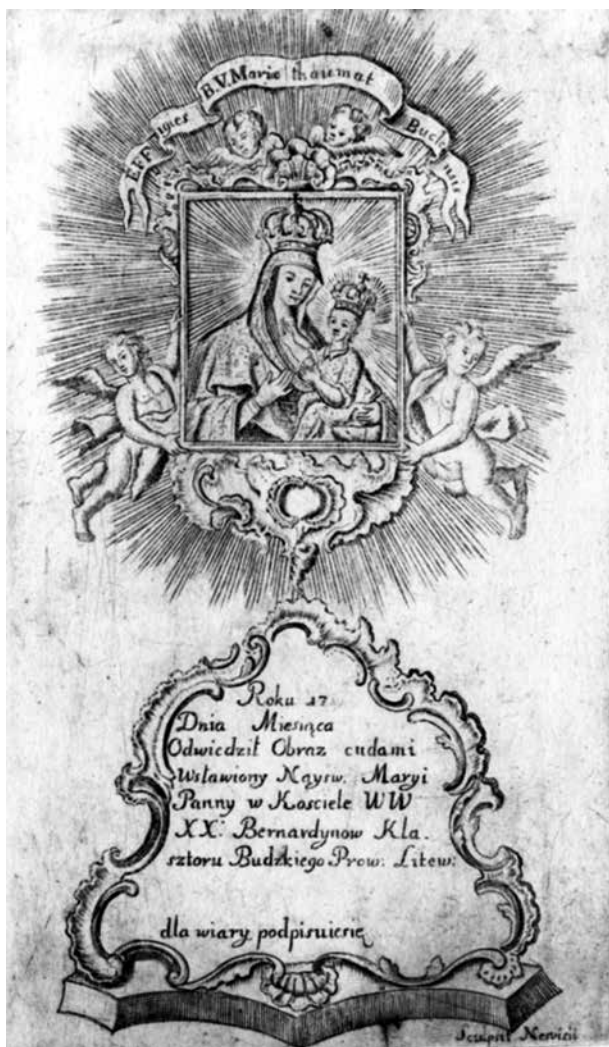 EFFigies B.V. Mariæ thaumat
Roku 17
Dnia Miesiąca
Odwiedził Obraz cudami
Wsławiony Nayśw. Maryi
Panny w Kościele WW
XX. Bernardynow Kla.
sztoru Budzkiego Prow: Litew:
dla wiary podpisuiesię
Sculpsit